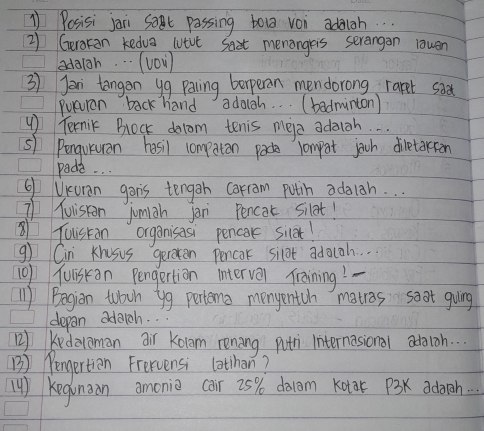 1) Posisi jari saat passing bola voli adalah ...
2) Gerakan kedua lutut saat menangkis serangan lawan
adalah ... (voli)
3) Jari tangan yg paling berperan mendorong raket saat
pukulan back hand adalah ... (badminton)
4) Teknik Block dalam tenis meja adalah ...
5) Pengukuran hasil lompatan pada lompat jauh diletakkan
pada ...
6) Ukuran garis tengah cakram putih adalah ...
7) Tuliskan jumlah jari Pencak Silat!
8) Tuliskan organisasi pencak silat!
9) Ciri khusus gerakan Pencak silat adalah ...
10) Tuliskan Pengertian Interval Training! -
11) Bagian tubuh yg pertama menyentuh matras saat guling
depan adalah ...
12) Kedalaman air kolam renang putri Internasional adalah ...
13) Pengertian Frekuensi latihan?
14) Kegunaan amonia cair 25% dalam kotak P3K adalah ...